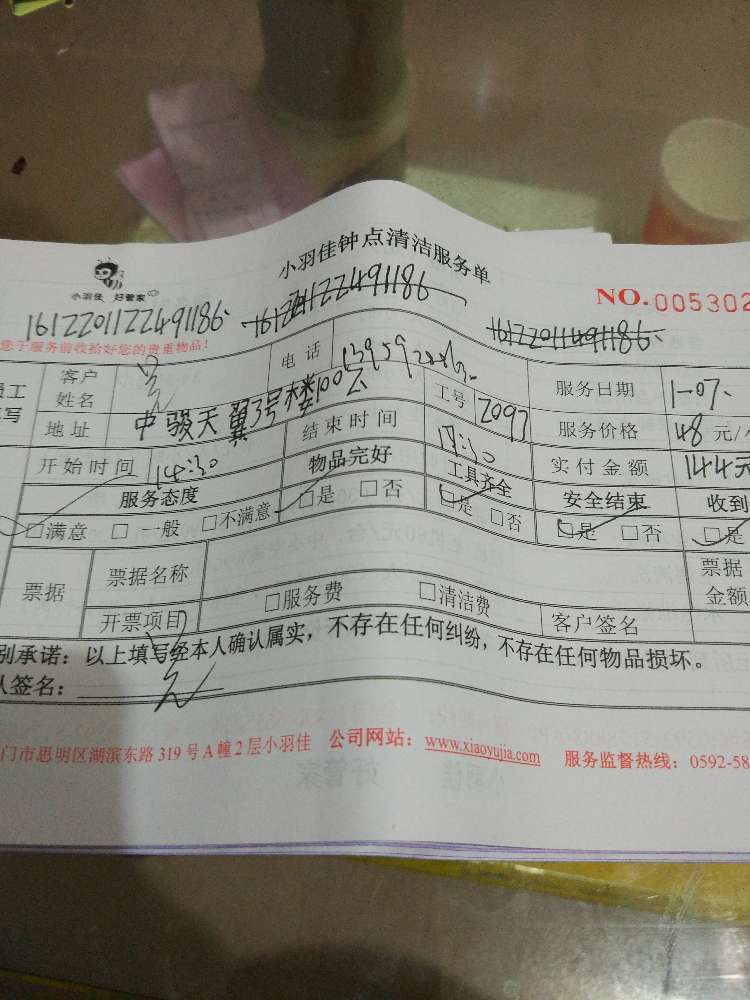 小羽佳钟点清洁服务单
小羽佳 好管家
NO.005302
1612201122491186.
1612201122491186
16122011491186.
您于服务前收拾好您的贵重物品!
员工 客户姓名 电话 服务日期 1-07.
填写 地址 中骏天翼3号楼 工号 2097 服务价格 48元/
开始时间 14:30 结束时间 17:30 实付金额 144元
服务态度 物品完好 工具齐全 安全结束 收到
□满意 □一般 □不满意 □是 □否 □是 □否 □是 □否 □是
票据 票据名称 票据金额
开票项目 □服务费 □清洁费 客户签名
别承诺:以上填写经本人确认属实,不存在任何纠纷,不存在任何物品损坏。
人签名:
门市思明区湖滨东路319号A幢2层小羽佳 公司网站:www.xiaoyujia.com 服务监督热线:0592-58